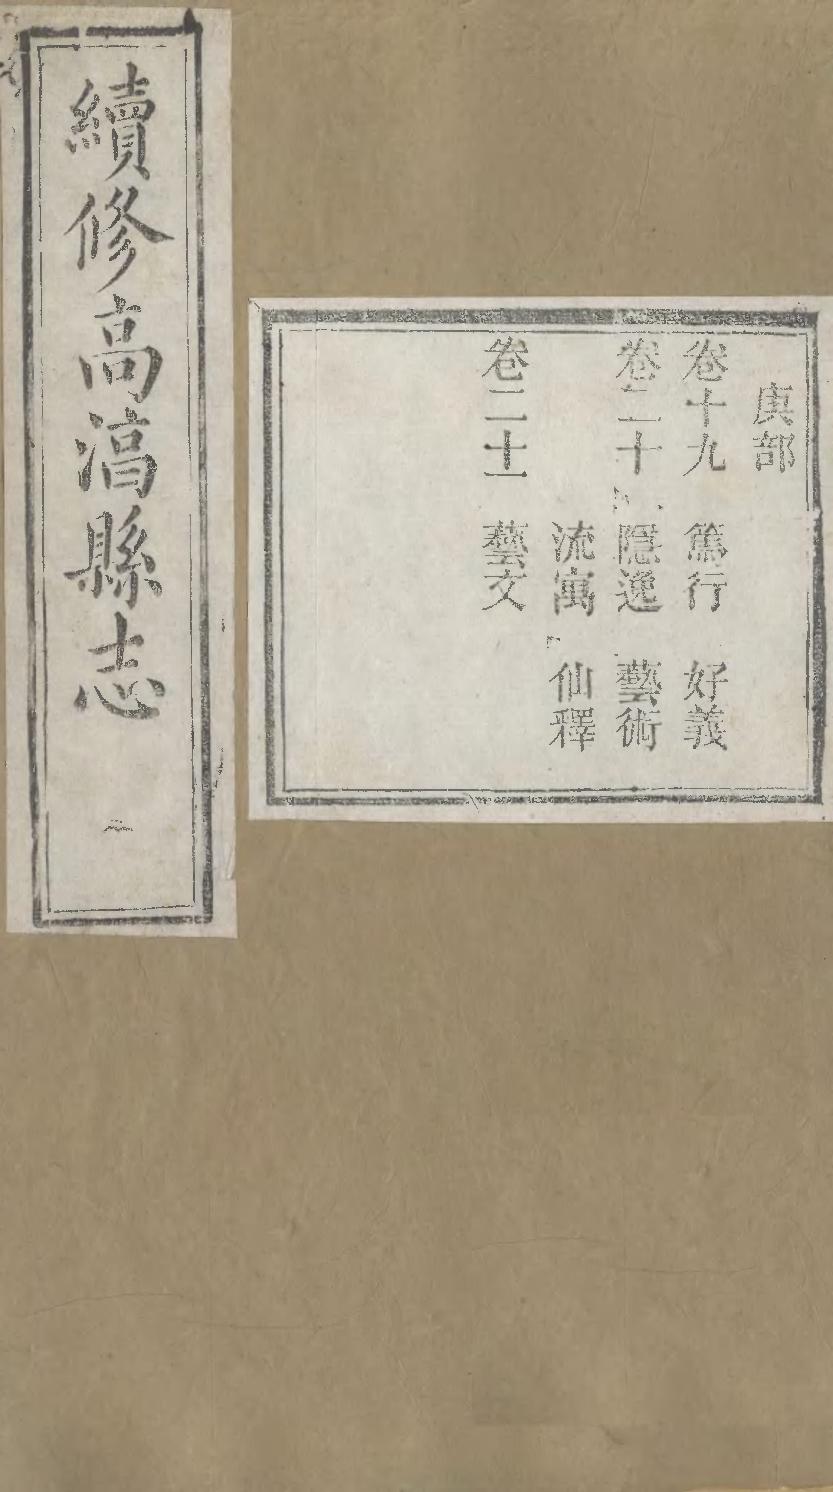 續修高淳縣志
庚部
卷十九　篤行　好義
卷二十　隱逸　藝術
流寓　仙釋
卷二十一　藝文